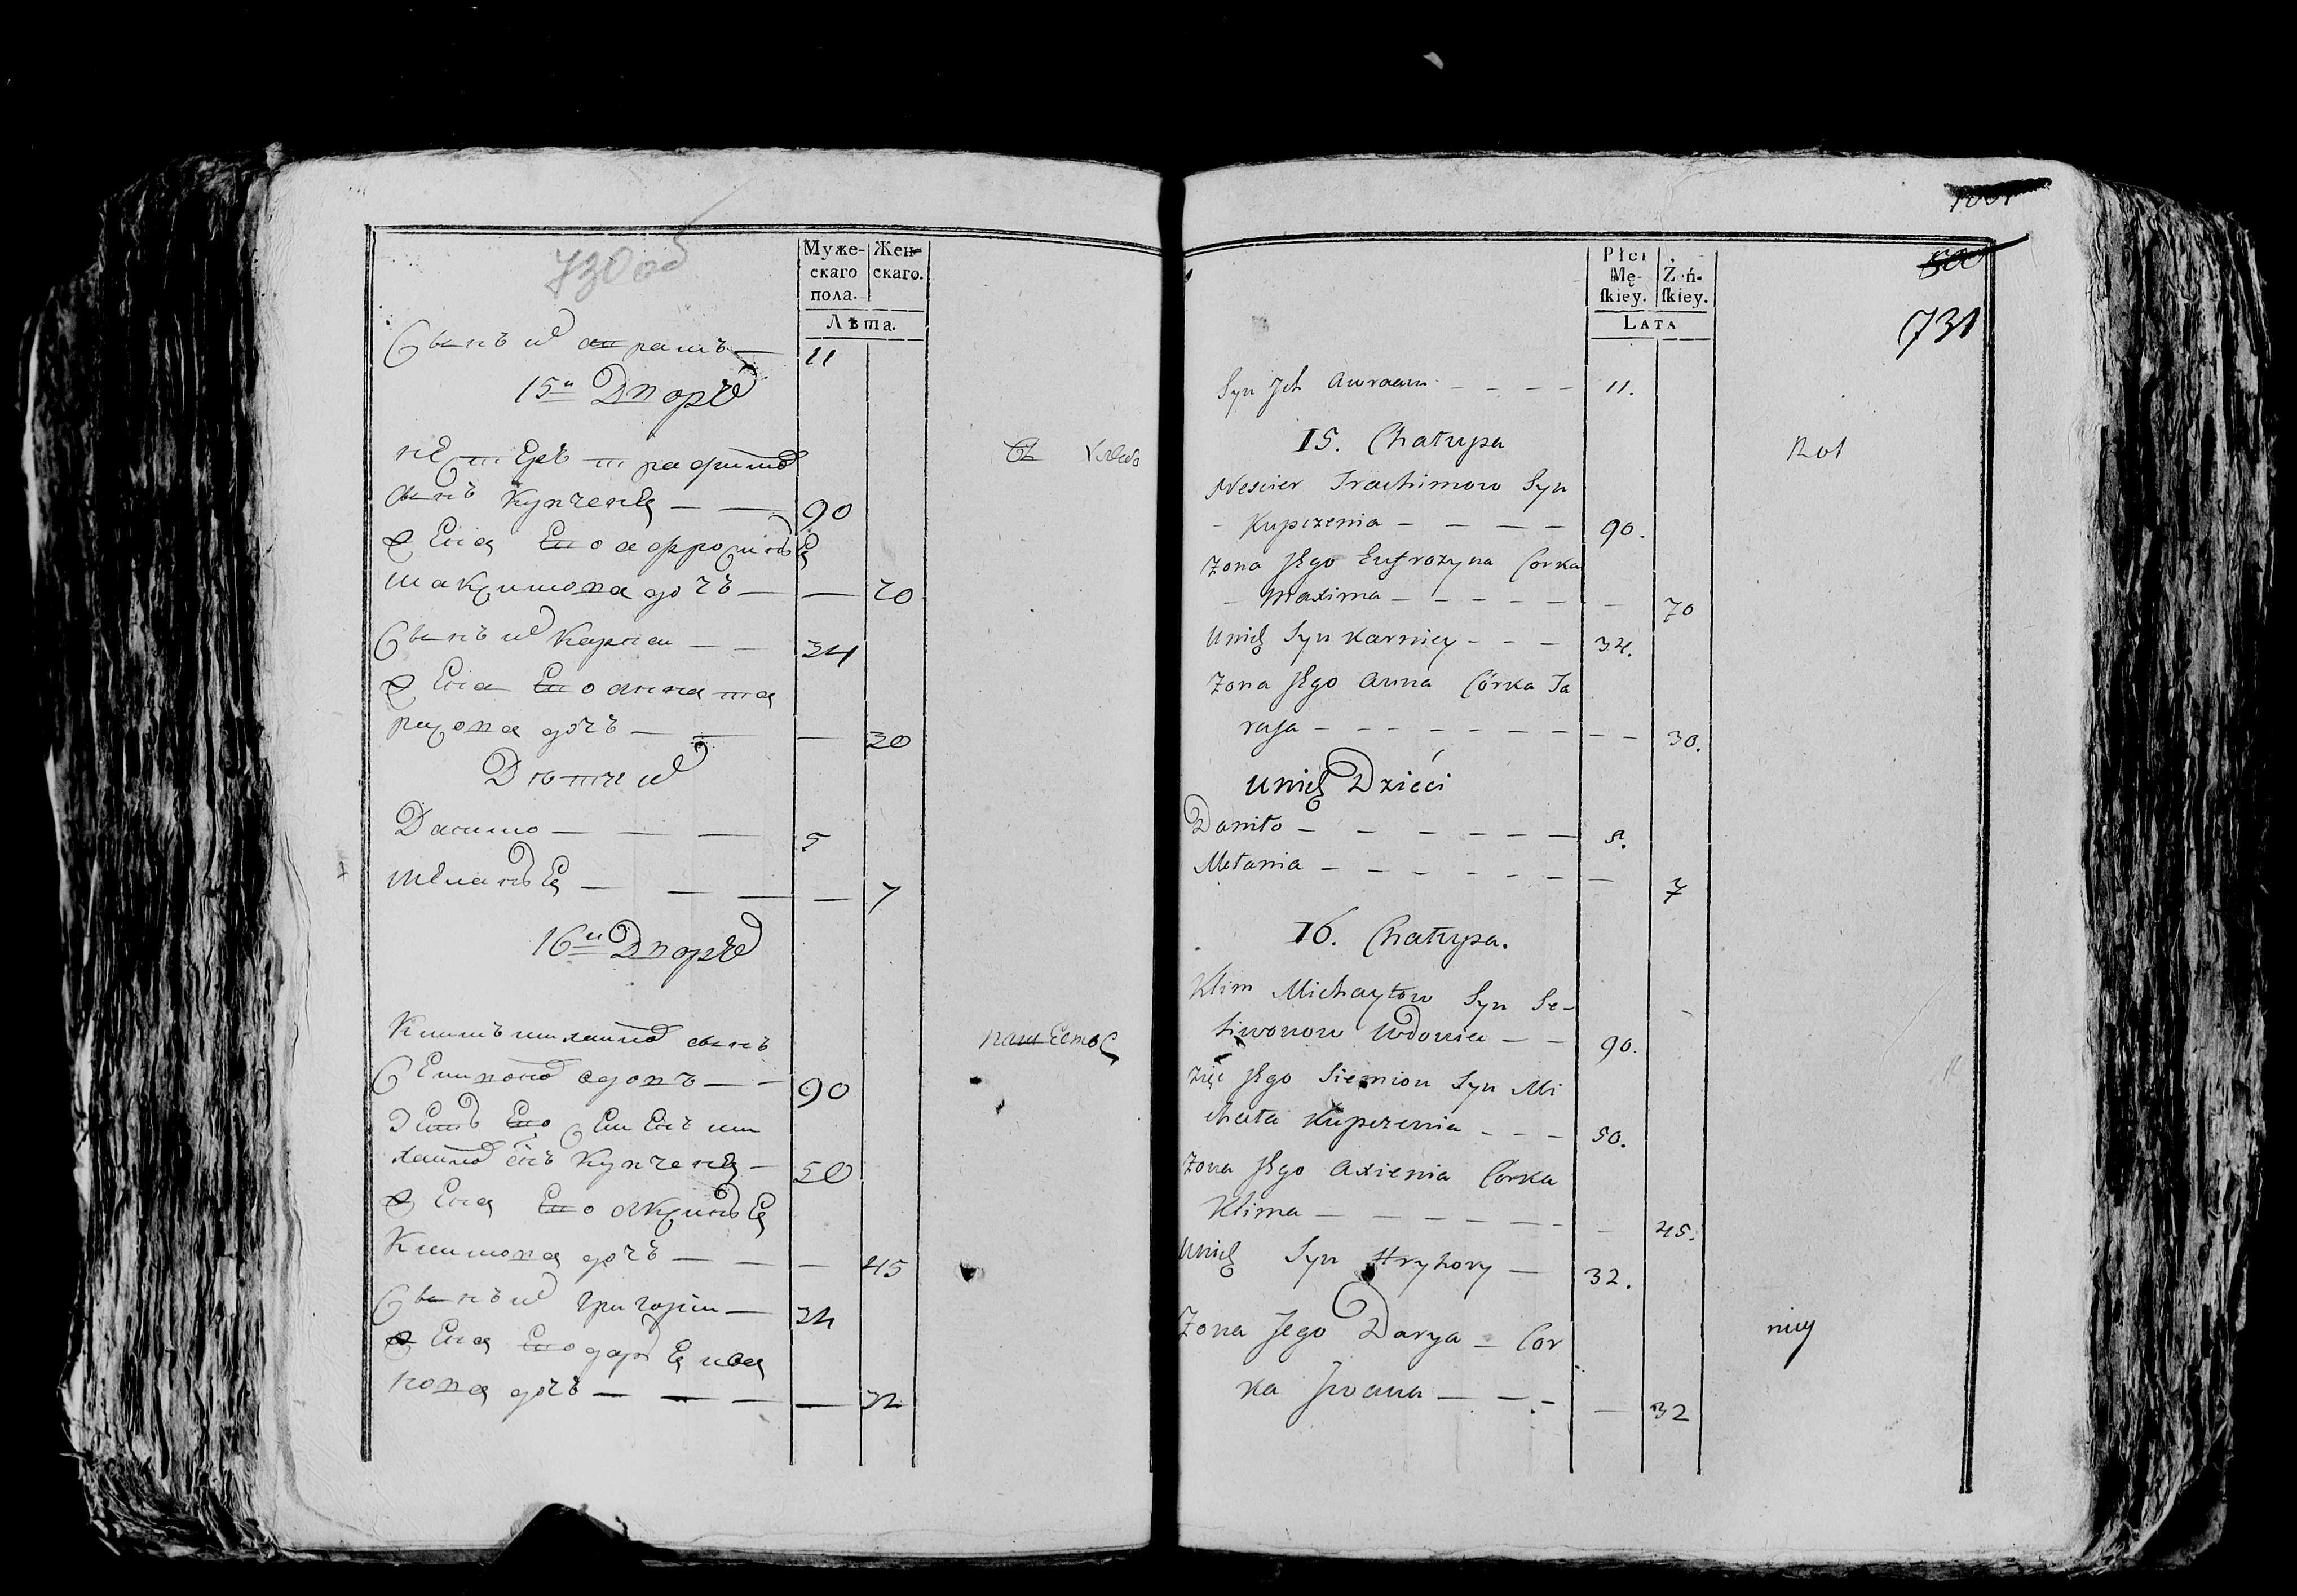 730 об
Муже- Жен-
скаго скаго.
пола.
Лѣта.
Сынъ ихъ авраамъ — 11
15й Дворъ
нестеръ трафимовъ
сынъ Купченя — — 90
жена Его афросинья
максимова дочь — — 70
Сынъ ихъ Карней — — 34
жена Его анна та
расова дочь — — — 30
Дети ихъ
Данило — — — 5
меланья — — — — 7
16й Дворъ
Климъ михайловъ сынъ
Селивоновъ вдовъ — — 90
зять Его Семенъ ми
хайловъ сынъ Купченя — 50
жена Его аксинья
Климова дочь — — — 45
Сынъ ихъ григорий — 32
жена Его дарья ива
нова дочь — — — — 32
Płci
Mę- Żeń-
ſkiey. ſkiey.
LATA
500
731
Syn Jch Awraam — — — — 11.
15. Chałupa
Nescier Trachimow Syn
Kupczenia — — — — 90.
Zona Jego Eufrozyna Corka
Maxima — — — — — — 70
Unich Syn Karniey — — — 34.
Zona Jego Anna Córka Ta
rasa — — — — — — — — — 30.
Unich Dzieci
Daniło — — — — — — 5.
Mełania — — — — — — — 7
16. Chałupa.
Klim Michayłow Syn Se-
liwonow Wdowiec — — 90.
Zięć Jego Siemion Syn Mi
chała Kupczenia — — — 50.
Zona Jego Axienia Corka
Klima — — — — — — — 45.
Unich Syn Hryhory — 32.
Zona Jego Darya — Cor
ka Jwana — — — — 32